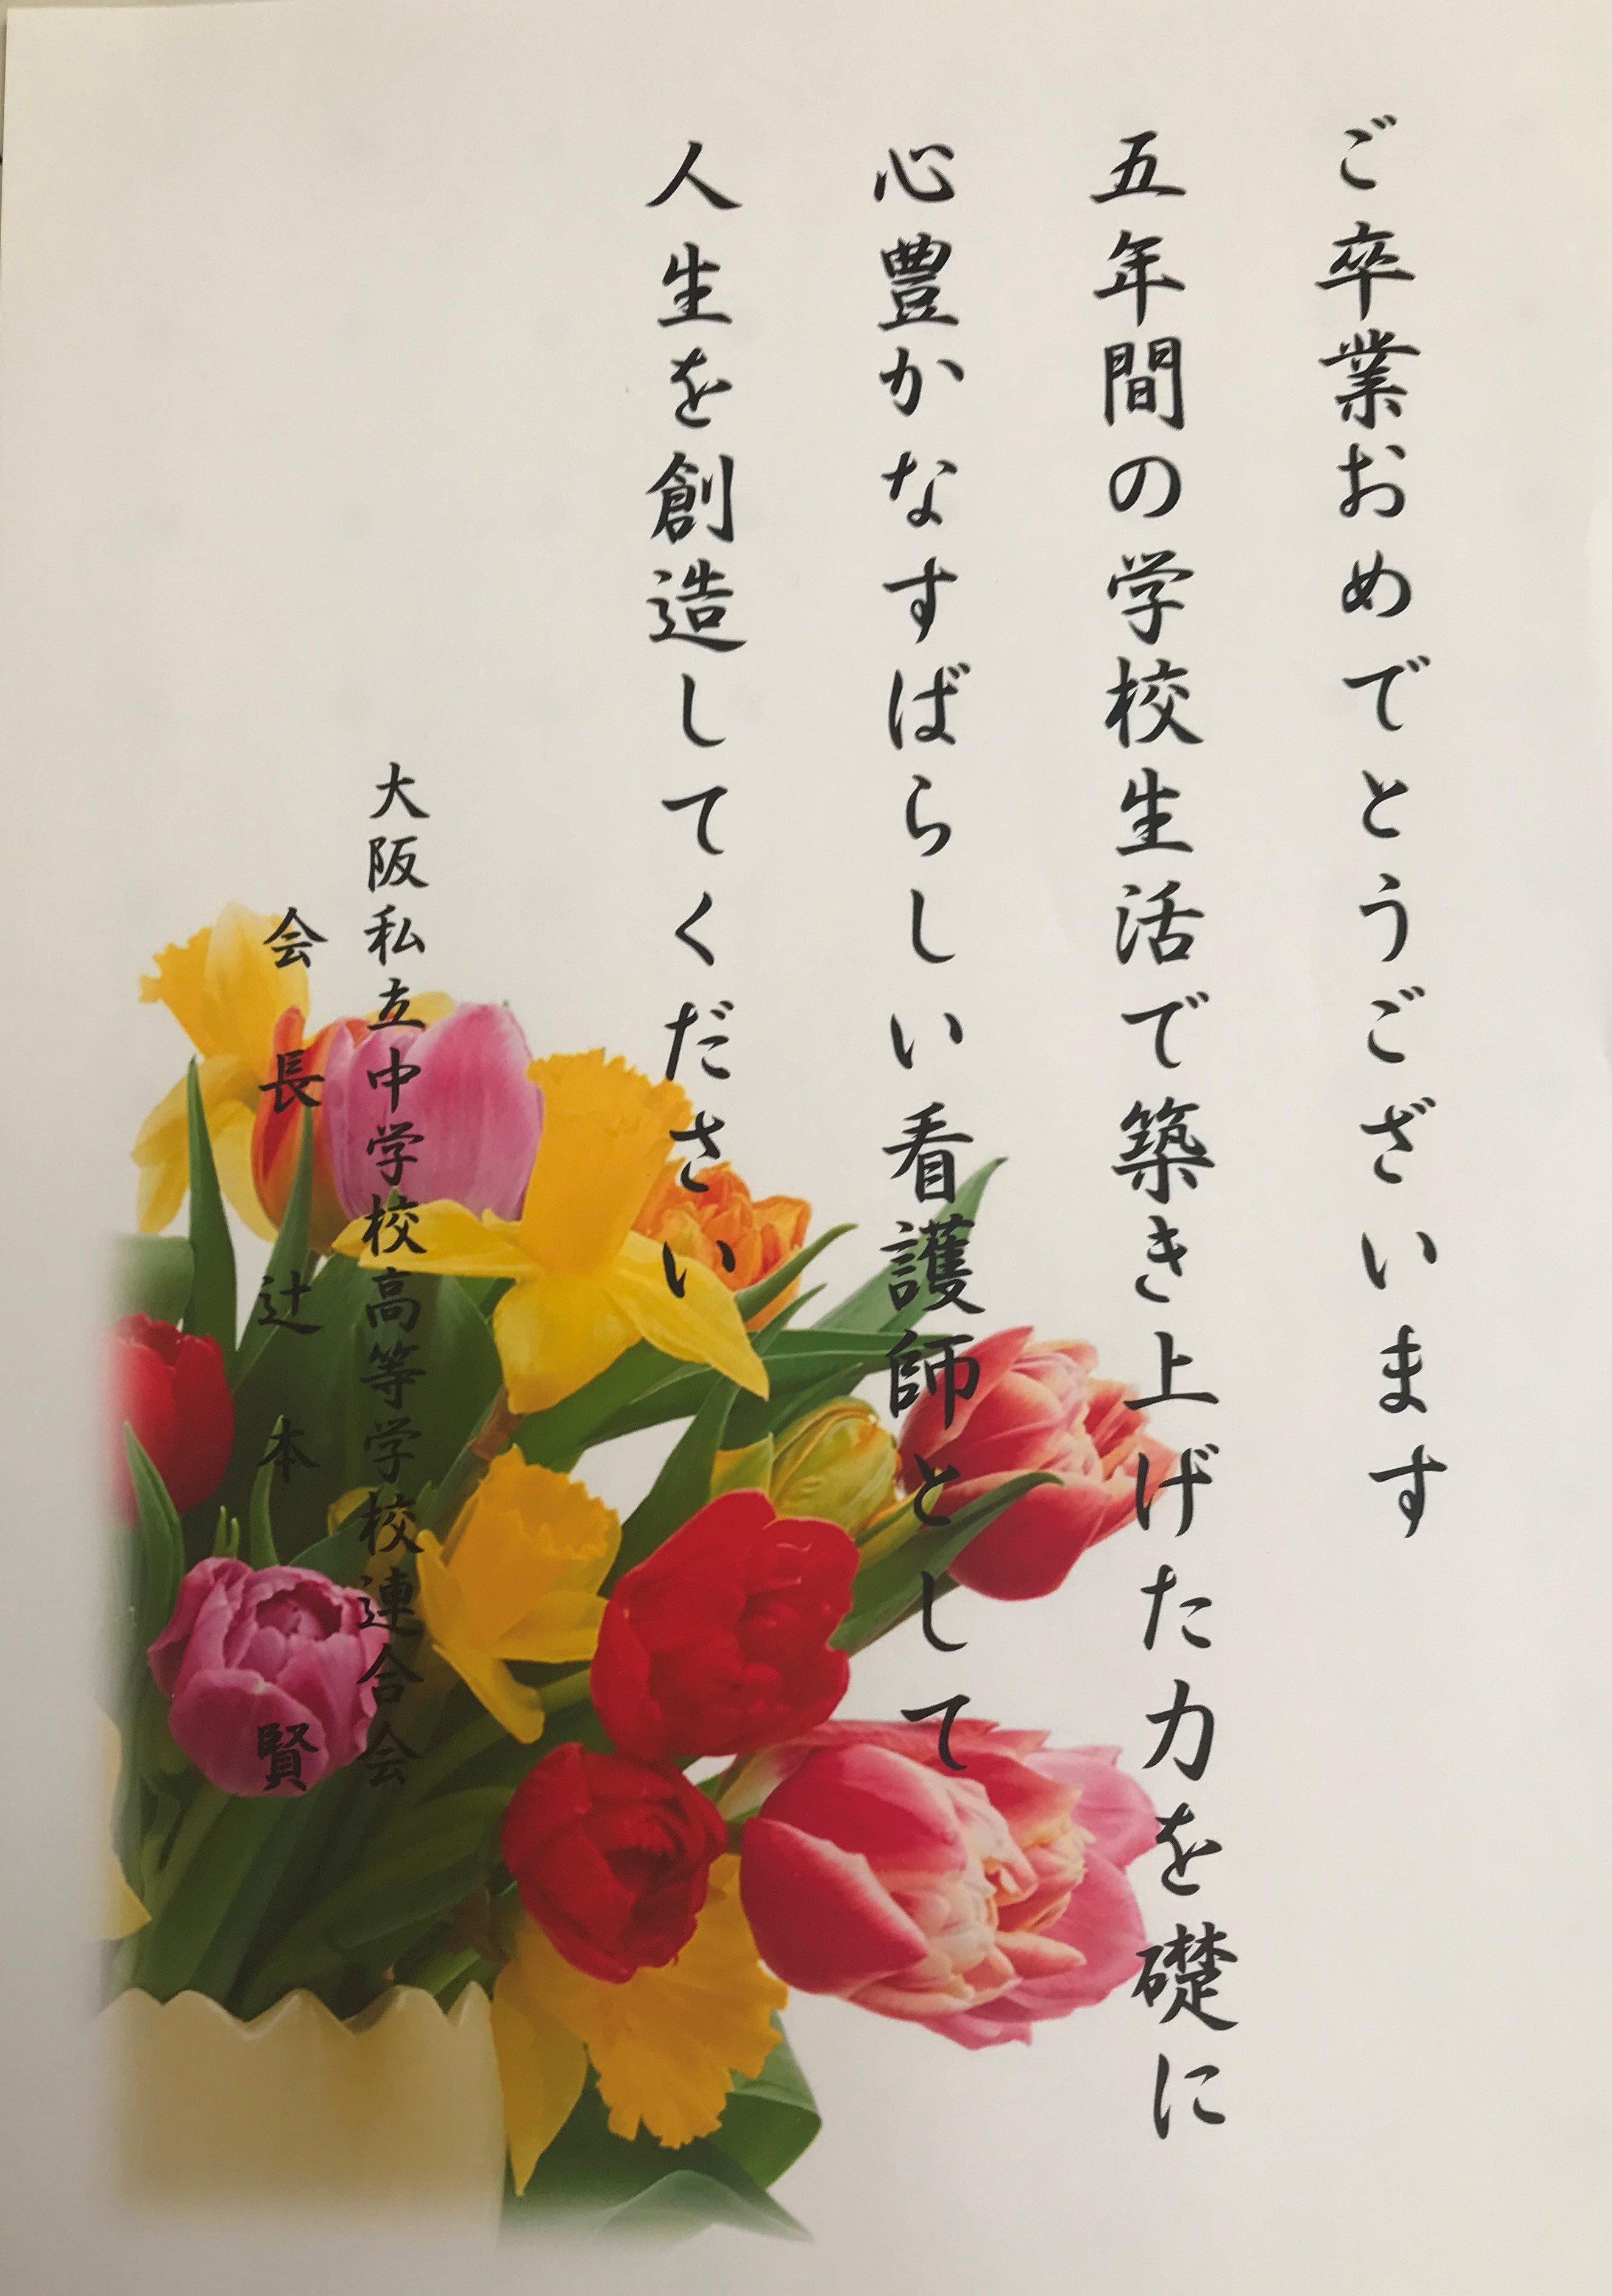 ご卒業おめでとうございます
五年間の学校生活で築き上げた力を礎に
心豊かなすばらしい看護師として
人生を創造してください
大阪私立中学校高等学校連合会
会長 辻本 賢